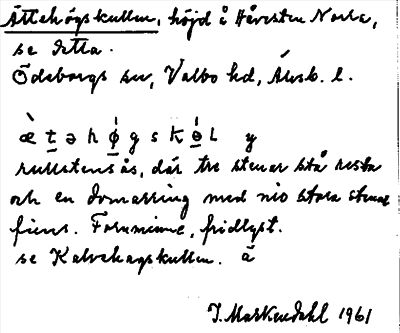 Ättehögskullen, höjd å Håvesten Norra,
se detta.
Ödeborgs sn, Valbo hd, Älvsb. l.
æ̀ t̲ ə h ǿ̲ g s k ə̲́ L y
rullstensås, där tre stenar stå resta
och en domarring med nio stora stenar
finns. Fornminne, fridlyst.
se Kalvehagskullen. å
J. Markendahl 1961